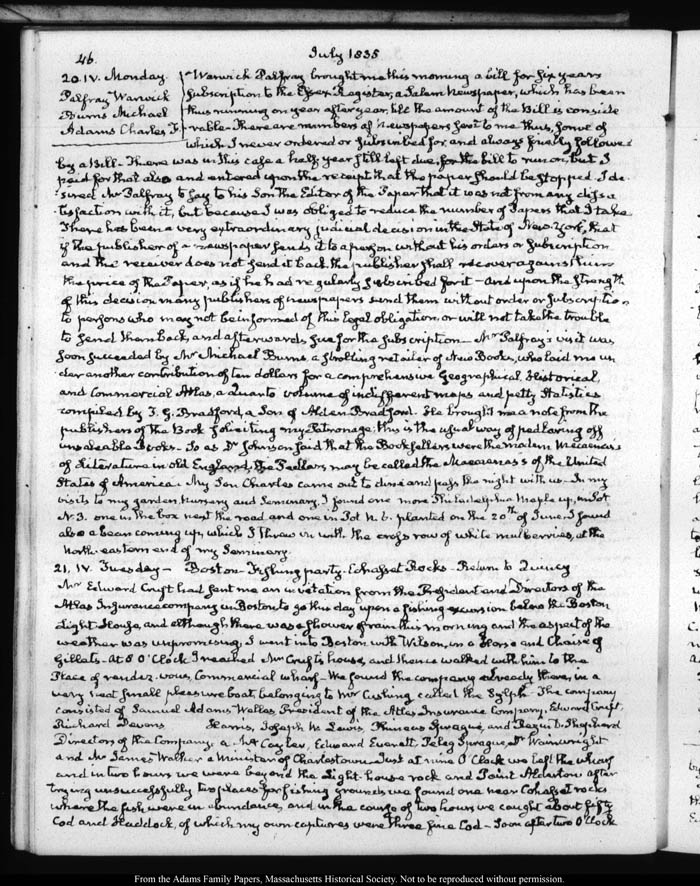 46.
July 1835
20. IV. Monday.
Palfray Warwick
Burns Michael
Adams Charles F.
Warwick Palfray brought me this morning a bill for six years
subscription to the Essex Register, a Salem Newspaper, which has been
thus running on year after year, till the amount of the Bill is conside
rable— There are numbers of Newspapers sent to me thus, some of
which I never ordered or subscribed for, and always finally followed
by a Bill— There was in this case a half year still left due, for the bill to run on, but I
paid for that also and entered upon the receipt that the paper should be stopped. I de
sired Mr Palfray to say to his Son the Editor of the Paper that it was not from any dissa
tisfaction with it, but because I was obliged to reduce the number of Papers that I take
There has been a very extraordinary judicial decision in the State of New-York, that
if the publisher of a newspaper sends it to a person without his orders or subscription
and the receiver does not send it back, the publisher shall recover against him
the price of the Paper, as if he had regularly subscribed for it— and upon the strength
of this decision many publishers of newspapers send them without order or subscription
to persons who may not be informed of this legal obligation, or will not take the trouble
to send them back, and afterwards sue for the subscription— Mr Palfray's visit was
soon succeeded by Mr Michael Burns, a strolling retailer of New Books, who laid me un
der another contribution of ten dollars for a comprehensive Geographical, Historical,
and Commercial Atlas, a Quarto volume of indifferent maps and petty statistics
compiled by T. G. Bradford, a Son of Alden Bradford. He brought me a note from the
publishers of the Book soliciting my Patronage; this is the usual way of pedlaring off
unsaleable Books— So as Dr Johnson said that the Booksellers were the modern Mecaenas's
of Literature in old England, the Pedlars may be called the Maecenas's of the United
States of America. My Son Charles came out to dine and pass the night with us— In my
visits to my garden, Nursery and Seminary, I found one more Philadelphia Maple up, in Pot
N. 3. one in the box next the road and one in Pot N. 6. planted on the 20th of June. I found
also a bean coming up, which I threw in with the cross row of white mulberries, at the
North-eastern end of my Seminary.
21. IV. Tuesday— Boston— Fishing party. Cohasset Rocks— Return to Quincy
Mr Edward Cruft had sent me an invitation from the President and Directors of the
Atlas Insurance company in Boston to go this day upon a fishing excursion below the Boston
Light House, and although there was a shower of rain this morning and the aspect of the
weather was unpromising, I went into Boston with Wilson, in a Horse and Chaise of
Gillett's— At 8 O'Clock I reached Mr Cruft's house, and thence walked with him to the
Place of rendez-vous, Commercial wharf— We found the company already there, in a
very neat small pleasure boat, belonging to Mr Cushing called the Sylph— The company
consisted of Samuel Adams Welles, President of the Atlas Insurance Company, Edward Cruft,
Richard Devens Harris, Joseph W. Lewis, Phineas Sprague, and Shepherd
Directors of the Company: a Mr Cayler, Edward Everett, Peleg Sprague, Dr Wainwright
and Mr James Walker a Minister of Charlestown— Just at nine O'Clock we left the wharf
and in two hours we were beyond the Light-house rock and Point Alderton after
trying unsuccessfully two places for fishing grounds we found one near Cohasset rocks
where the fish were in abundance, and in the course of two hours we caught about fifty
Cod and Haddock, of which my own captures were three fine Cod— Soon after two O'Clock
From the Adams Family Papers, Massachusetts Historical Society. Not to be reproduced without permission.